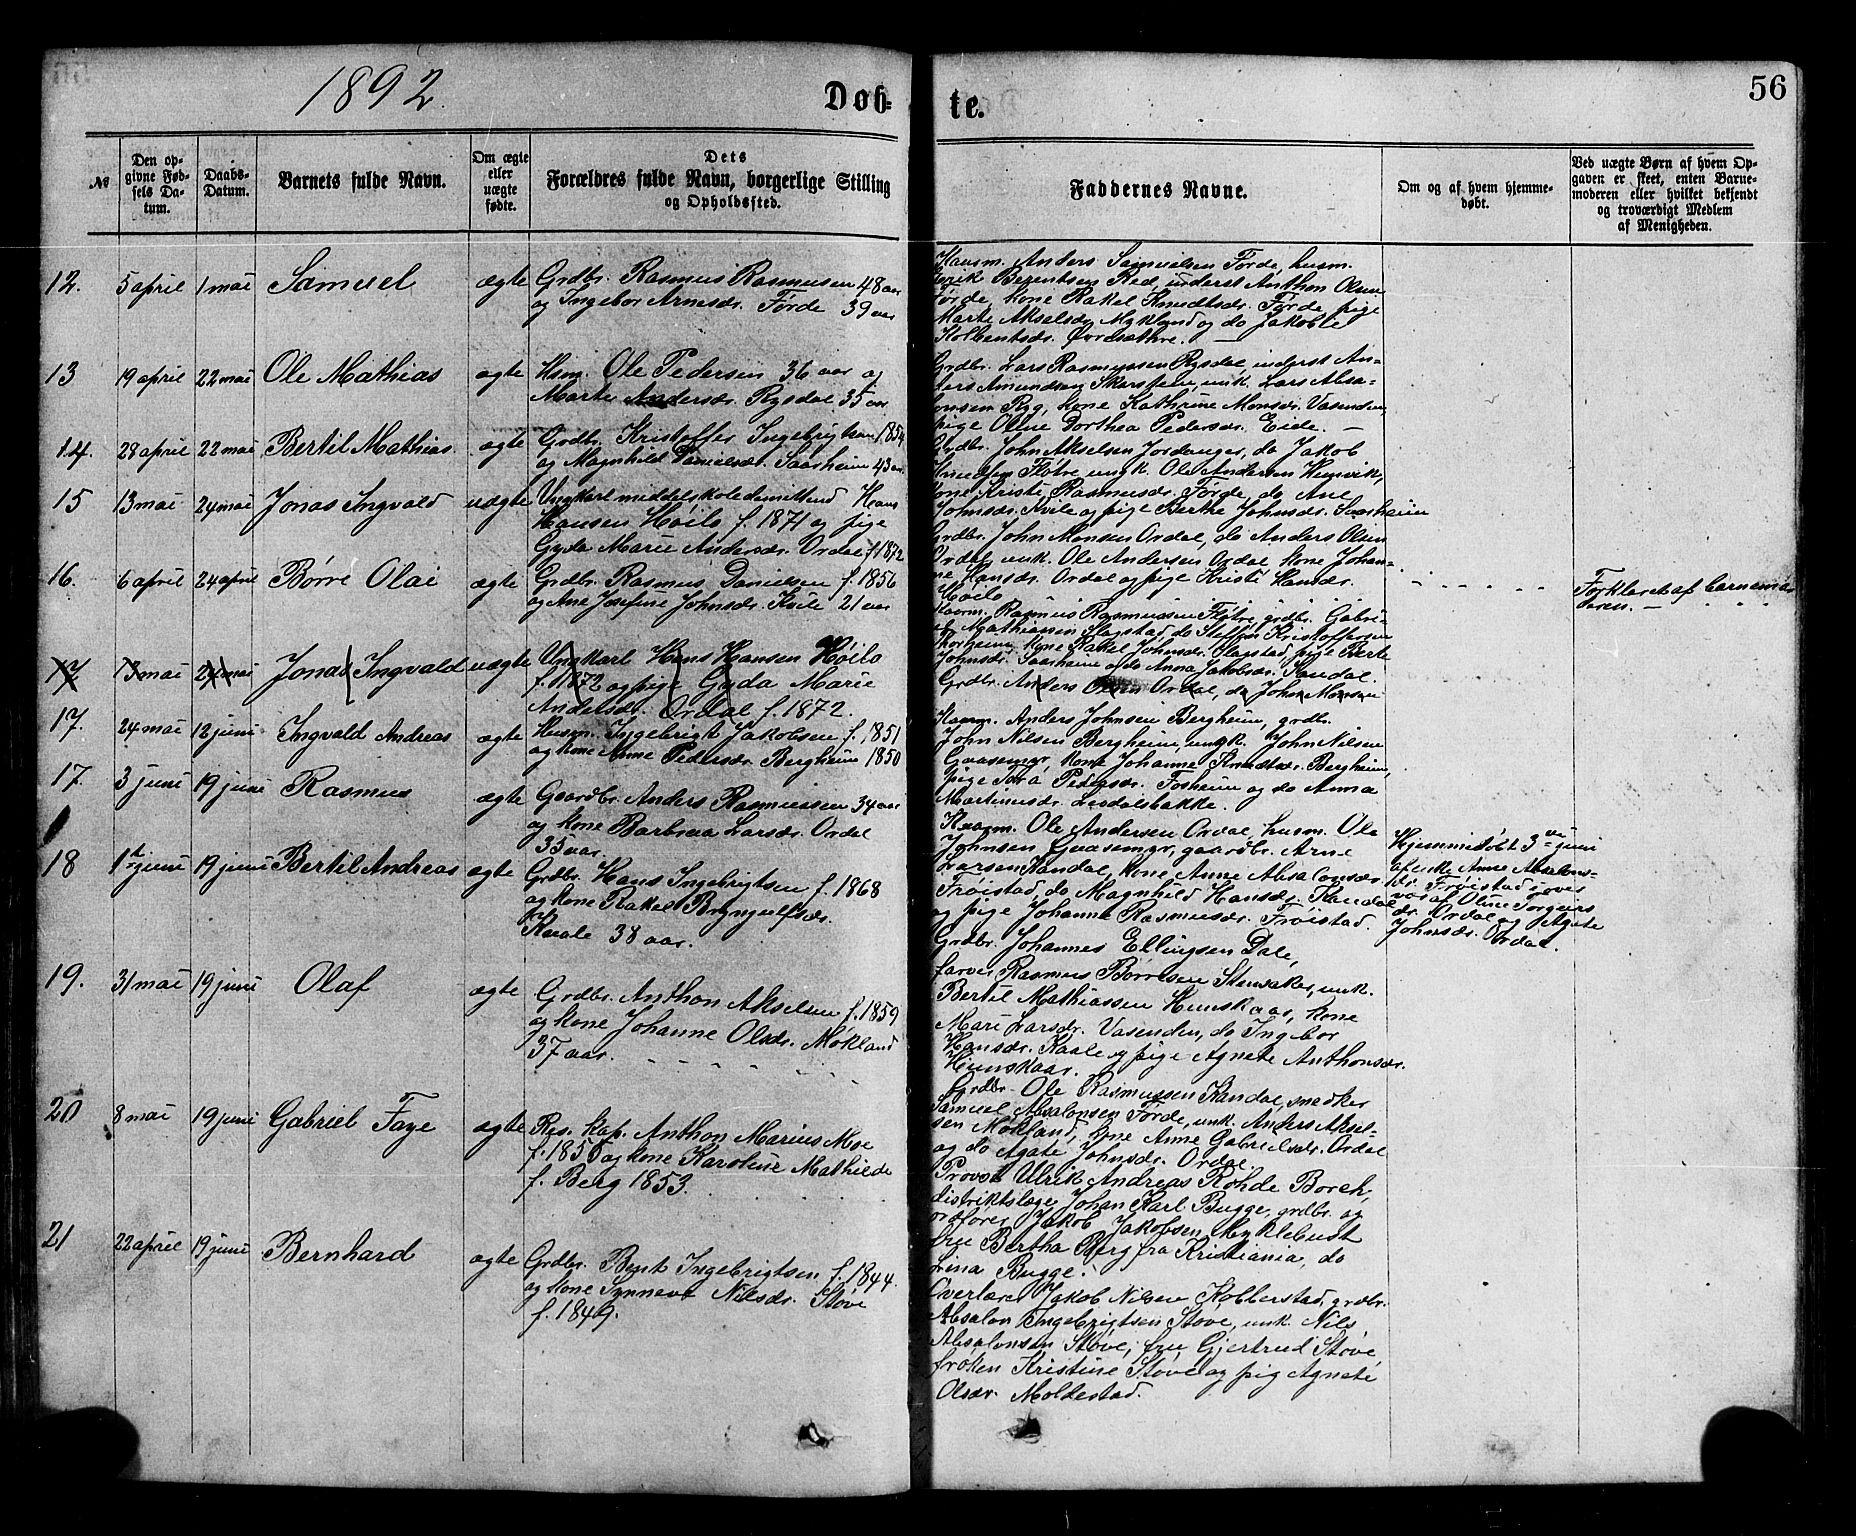 1892.
Døb=
te.
56
№
Den op-
givne Fød-
sels Da-
tum.
Daabs-
Datum.
Barnets fulde Navn.
Om ægte
eller
uægte
fødte.
Dets
Forældres fulde Navn, borgerlige Stilling
og Opholdssted.
Faddernes Navne.
Om og af hvem hjemme-
døbt.
Ved uægte Børn af hvem Op-
gaven er skeet, enten Barne-
moderen eller hvilket bekjendt
og troværdigt Medlem
af Menigheden.
12. 5 april 1 mai Samuel ægte Grdbr. Rasmus Rasmussen 48 aar
og Ingebor Arnesdr. Førde 39 aar
Kaarm. Anders Samuelsen Førde, husm.
Berentsen Red, inderst Anthon Olsen
Førde, kone Rakel Knudtsdr. Førde, pige
Marte Akselsdr Mykland og do Jakobie
Kolbentsdr.
13 19 april 22 mai Ole Mathias ægte Hsm. Ole Pedersen 36 aar og
Marte Andersdr. Rysdal 35 aar
Grdbr. Lars Rasmussen Rysdal, inderst An-
ders Amundsen Skarstein, unk. Lars Absa-
lonsen Ryg, kone Kathrine Monsdr. Vasenden
pige Oline Dorthea Pedersdr. Eide. —
14. 28 april 22 mai Bertil Mathias ægte Grdbr. Kristoffer Ingebrigtsen 1854
og Magnhild Danielsdr. Saarheim 43 aar
Grdbr. John Akselsen Jordanger, do Jakob
Knudsen Fløtre, ungk. Ole Andersen Hemvik,
kone Kristi Rasmusdr. Førde, do Ane
Johnsdr. Kvile og pige Berthe Johnsdr. Saarheim
15 13 mai 24 mai Jonas Ingvald uægte Ungkarl middelskoledemittend Hans
Hansen Høilo f. 1871 og pige
Gyda Marie Andersdr. Ordal f. 1872
Grdbr. John Monsen Ordal, do Anders Olsen
Ordal, unk. Ole Andersen Ordal kone Johan-
ne Hansdr. Ordal og pige Kristi Hansdr.
Høilo
Forklaret af barnemo-
deren. —
16. 6 april 24 april Børre Olai ægte Grdbr. Rasmus Danielsen f. 1856
og Ane Josefine Johnsdr. Kvile 21 aar
Kaarm. Rasmus Rasmussen Fløtre, grdbr. Gabri-
el Mathiassen Slagstad, do Steffen Kristoffersen
kone Rakel Johnsdr. Slagstad, pige Berte
Johnsdr. Saarheim og do Anna Jakobsdr. Kandal.
17 13 mai 24 mai Jonas Ingvald uægte Ungkarl Hans Hansen Høilo
f. 1872 og pige Gyda Marie
Andersdr. Ordal f. 1872.
Grdbr. Anders Olsen Ordal, do John Monsen
17. 24 mai 12 juni Ingvald Andreas ægte Husm. Ingebrigt Jakobsen f. 1851
og kone Anne Pedersdr. Bergheim 1850
Kaarm. Anders Johnsen Bergheim, grdbr.
John Nilsen Bergheim, ungk. John Nilsen
Gaasemyr, kone Johanne Knudtsdr. Bergheim,
pige Tora Pedersdr. Fosheim og do Anna
Martinusdr. Lesdalsbakke.
17. 3 juni 19 juni Rasmus ægte Gaardbr. Anders Rasmussen 34 aar
og kone Barbraa Larsdr. Ordal
35 aar.
Kaarm. Ole Andersen Ordal, husm. Ole
Johnsen Gaasemyr, gaardbr. Arne
Larsen Kandal, kone Anne Absalonsdr.
Frøistad, do Magnhild Hansdr. Kandal
og pige Johanne Rasmusdr. Frøistad.
Hjemmedøbt 3 juni
af enke Anne Absalons-
dr. Frøistad i over
vær af Oline Torgeirs
dr. Ordal og Agate
Johnsdr. Ordal.
18 1 juni 19 juni Bertil Andreas ægte Grdbr. Hans Ingebrigtsen f. 1868
og kone Rakel Brynjulfsdr.
Kvale 38 aar.
Grdbr. Johannes Ellingsen Dale,
farver Rasmus Børresen Stensaker, unk.
Bertil Mathiassen Hunskaar, kone
Mari Larsdr. Vasenden, do Ingebor
Hansdr. Kvale og pige Agnete Anthonsdr.
Hunskaar.
19. 31 mai 19 juni Olaf ægte Grdbr. Anthon Akselsen f. 1859
og kone Johanne Olsdr. Mykland
37 aar.
Grdbr. Ole Rasmussen Kandal, snedker
Samuel Absalonsen Førde, unk. Anders Aksel-
sen Mykland, kone Anne Gabrielsdr. Ordal
og do Agate Johnsdr. Ordal.
20 8 mai 19 juni Gabriel Faye ægte Res. kap. Anthon Marius Moe
f. 185 og kone Karoline Mathilde
f. Berg 1853.
Provst Ulrik Andreas Rohde Borch,
distriktslæge Johan Karl Bugge, grdbr. og
ordfører Jakob Jakobsen Myklebust
fru Bertha Berg fra Kristiania, do
Lina Bugge.
21 22 april 19 juni Bernhard ægte Grdbr. Bent Ingebrigtsen f. 1844.
og kone Synneve Nilsdr. Støve
f. 1849.
Overlærer Jakob Nilsen Kobberstad, grdbr.
Absalon Ingebrigtsen Støve, unk. Nils
Absalonsen Støve, fru Gjertrud Støve
frøken Kristine Støve og pig Agnete
Olsdr. Moldestad.